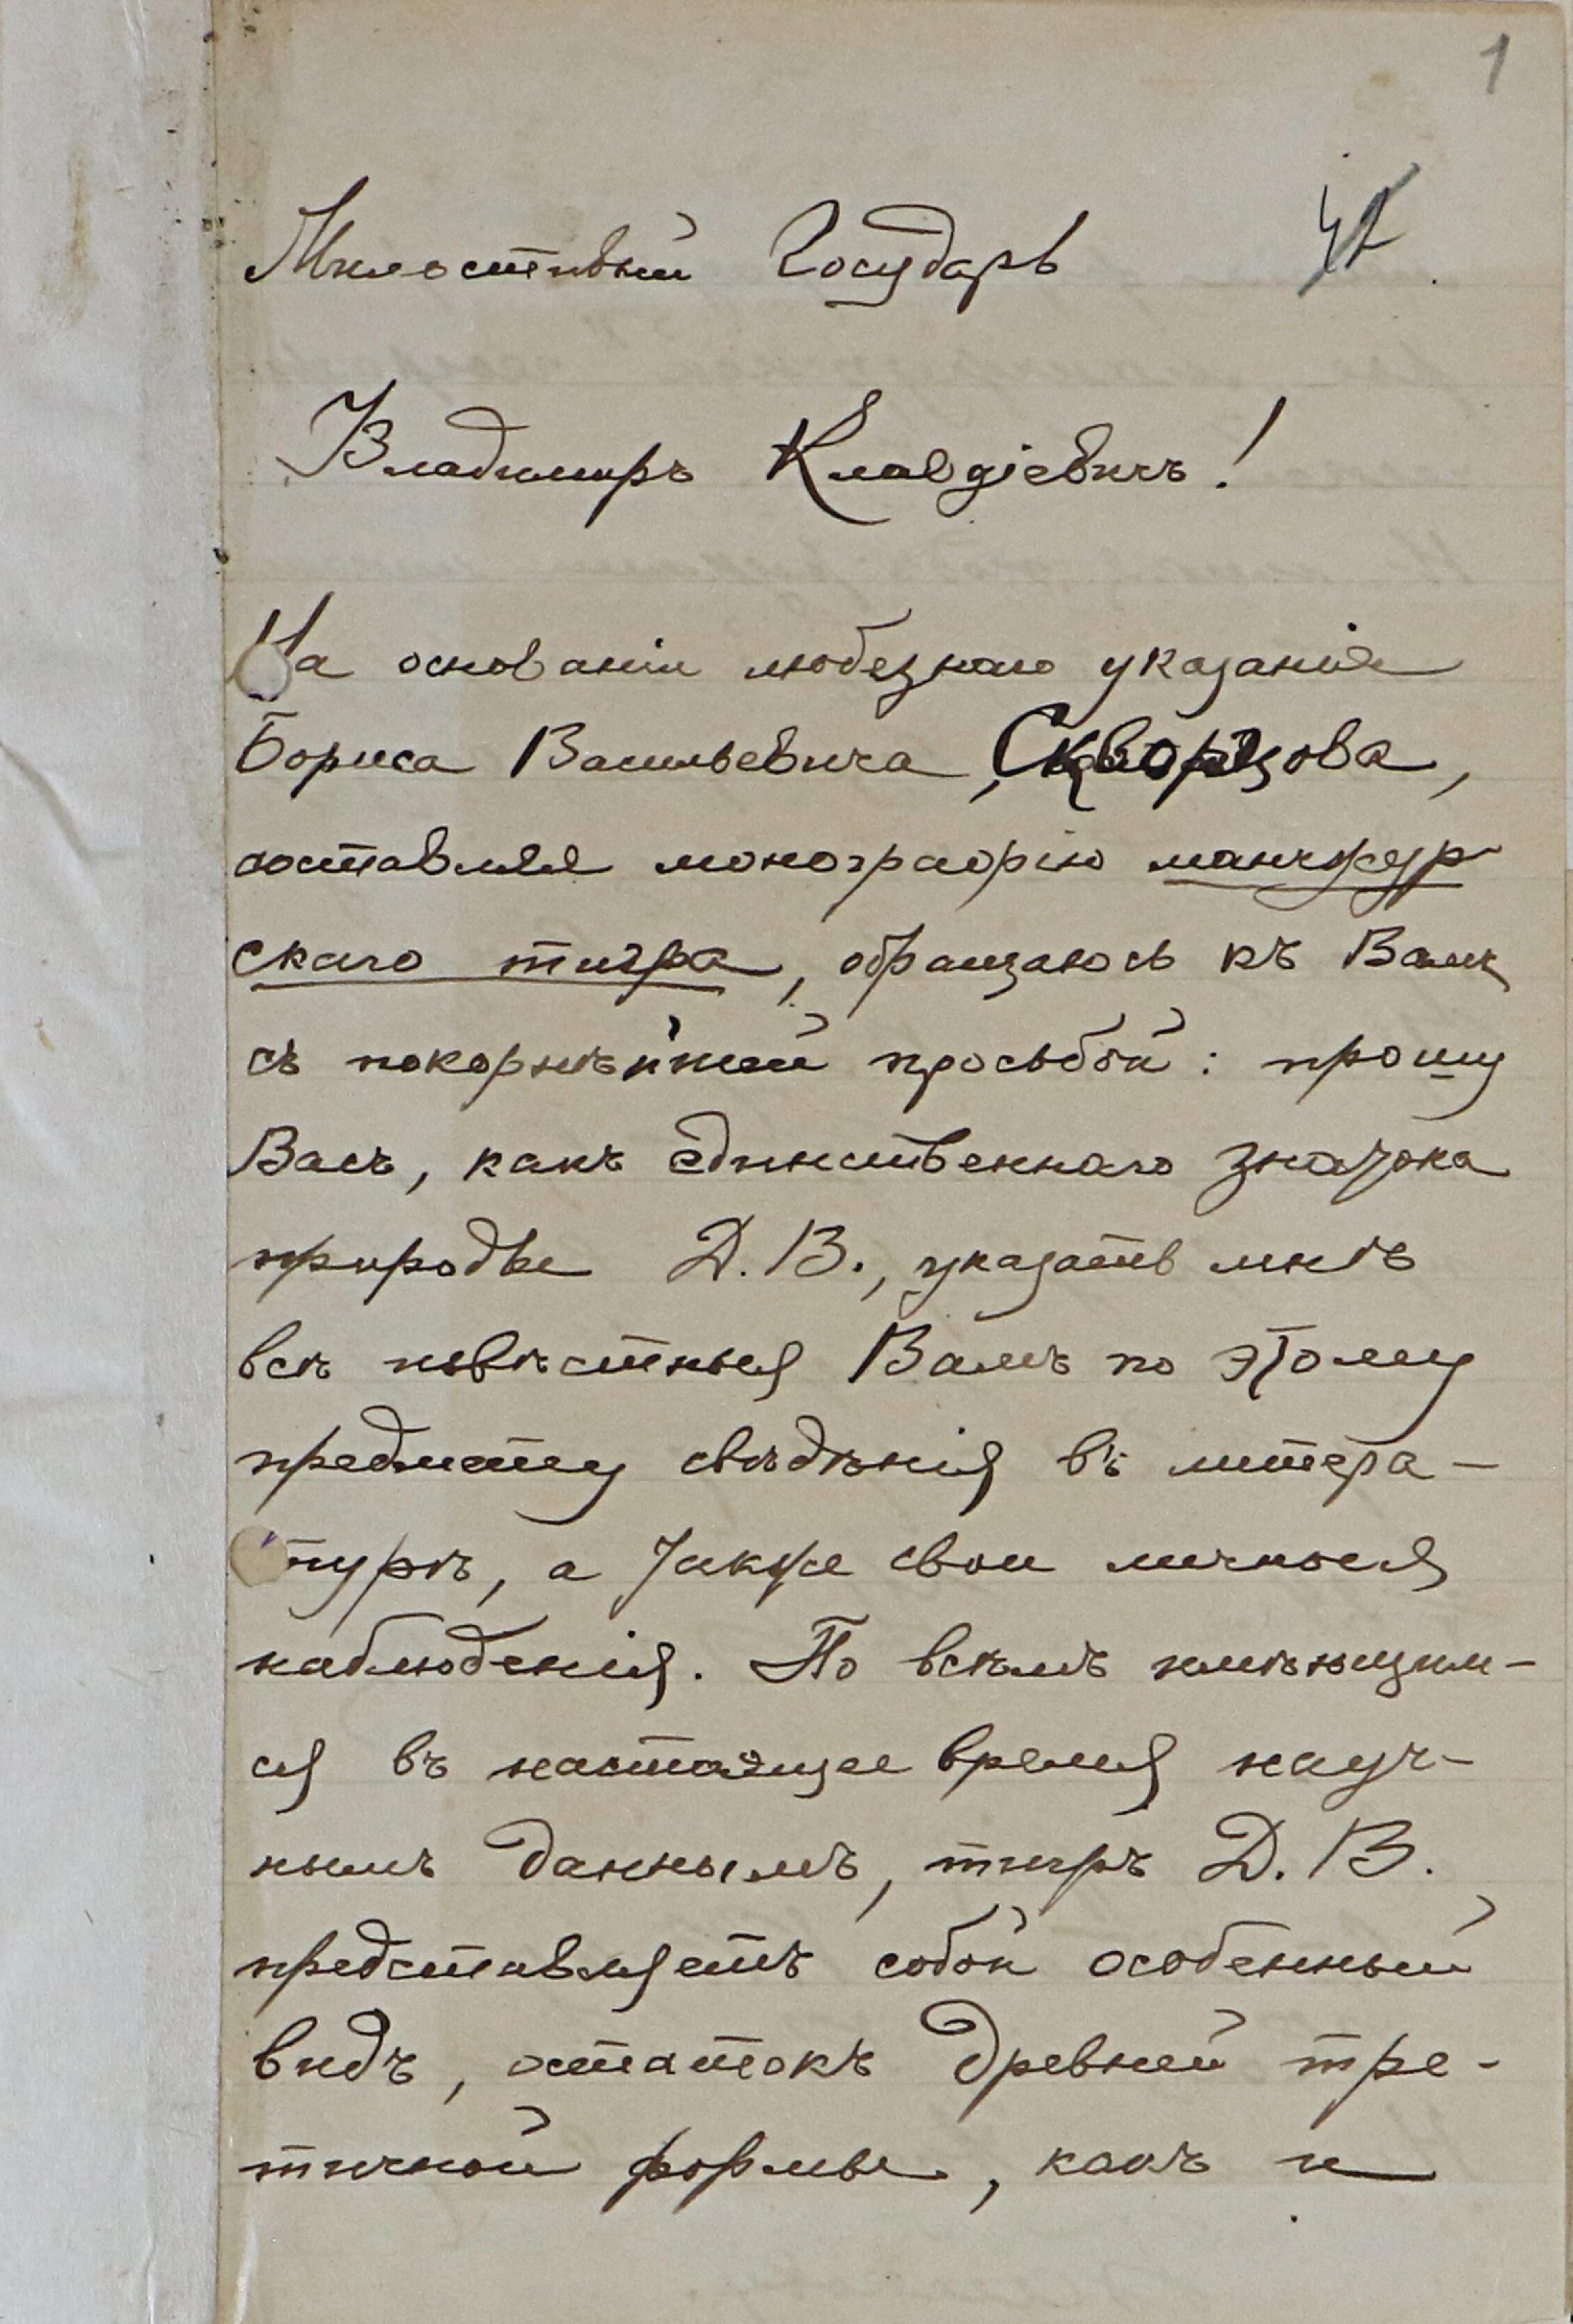 1
Милостивый Государь
Владимиръ Клавдіевичъ!
На основаніи любезнаго указанія
Бориса Васильевича Скворцова,
составляя монографію манчжур
скаго тигра, обращаюсь къ Вамъ
съ покорнѣйшей просьбой: прошу
Васъ, какъ единственнаго знатока
природы Д. В., указать мнѣ
всѣ извѣстныя Вамъ по этому
предмету свѣдѣнія въ литера-
турѣ, а также свои личныя
наблюденія. По всѣмъ имѣющим-
ся въ настоящее время науч-
нымъ даннымъ, тигръ Д. В.
представляетъ собой особенный
видъ, остатокъ древней тре-
тичной формы, какъ и